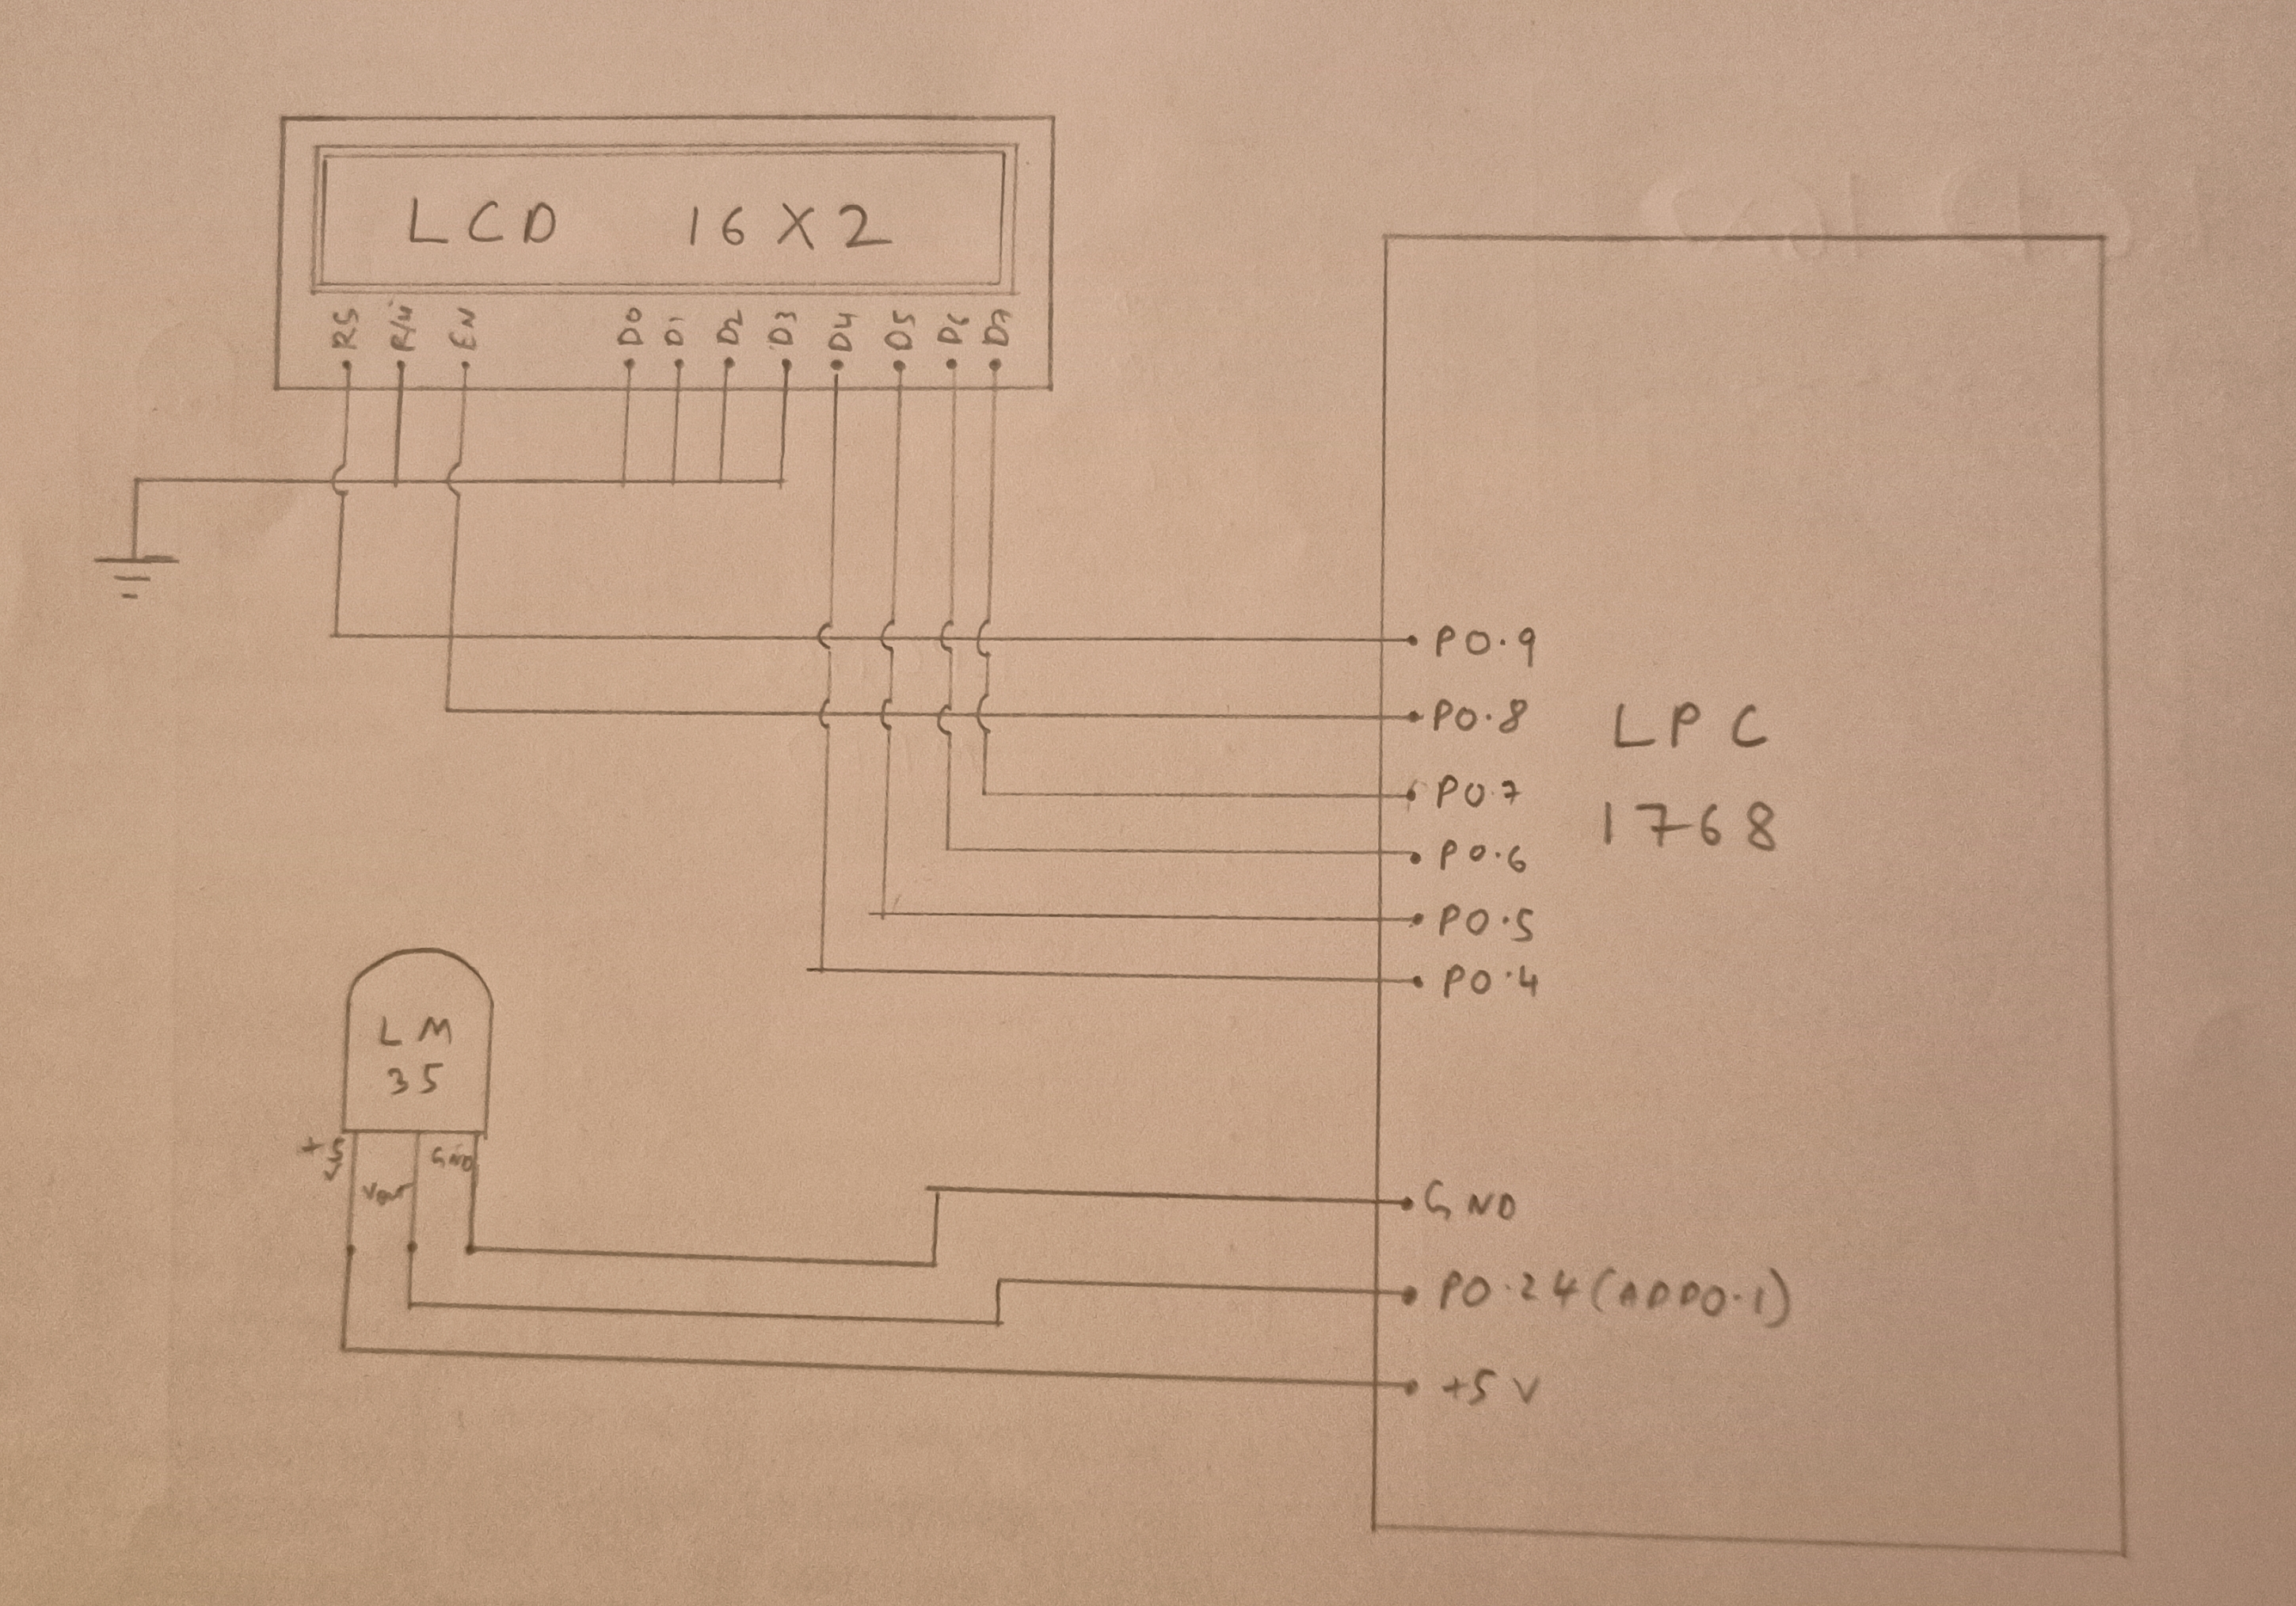 LCD 16X2
RS R/W EN D0 D1 D2 D3 D4 D5 D6 D7
P0.9
P0.8
P0.7
P0.6
P0.5
P0.4
LPC
1768
LM
35
+5
V
Vout
GND
GND
P0.24(AD0.1)
+5V